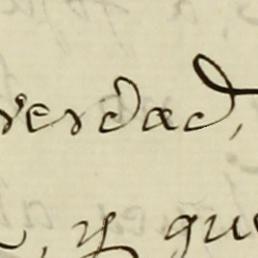 verdad,
, y que